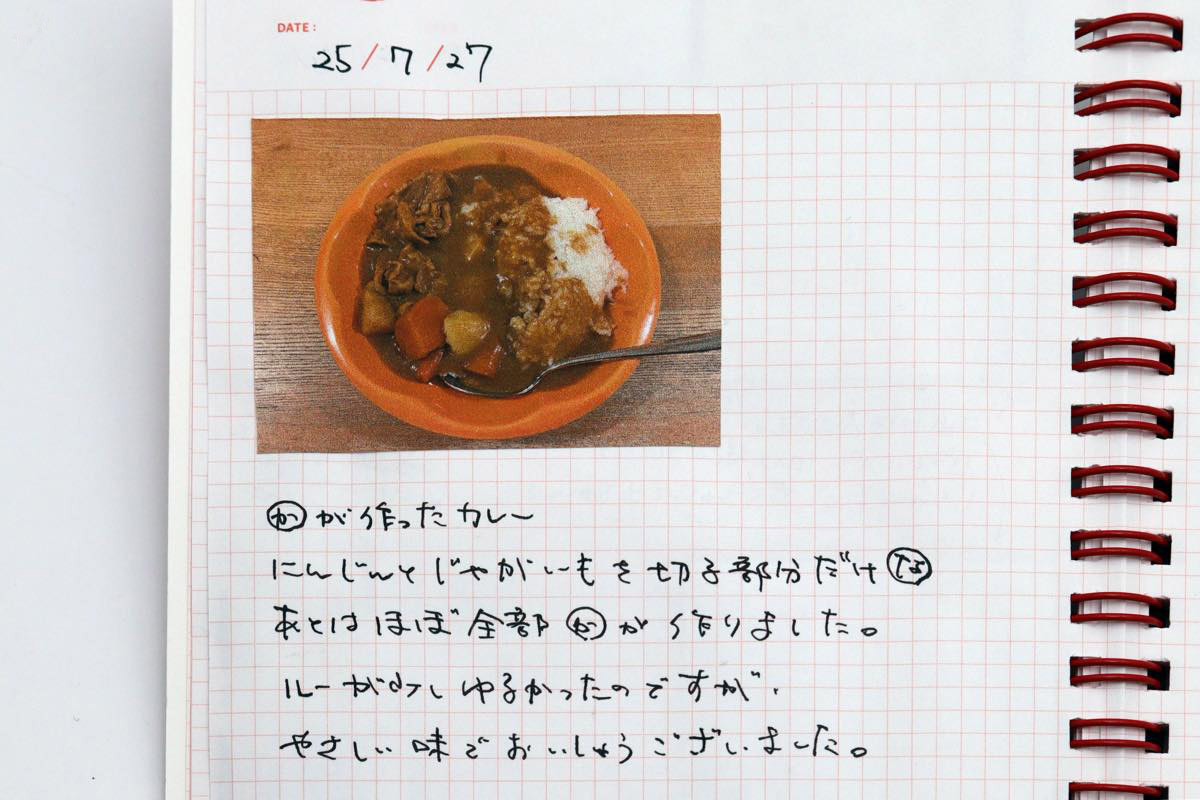 DATE:
25/7/27
かが作ったカレー
にんじんとじゃがいもを切る部分だけな
あとはほぼ全部かが作りました。
ルーが少しゆるかったのですが、
やさしい味でおいしゅうございました。